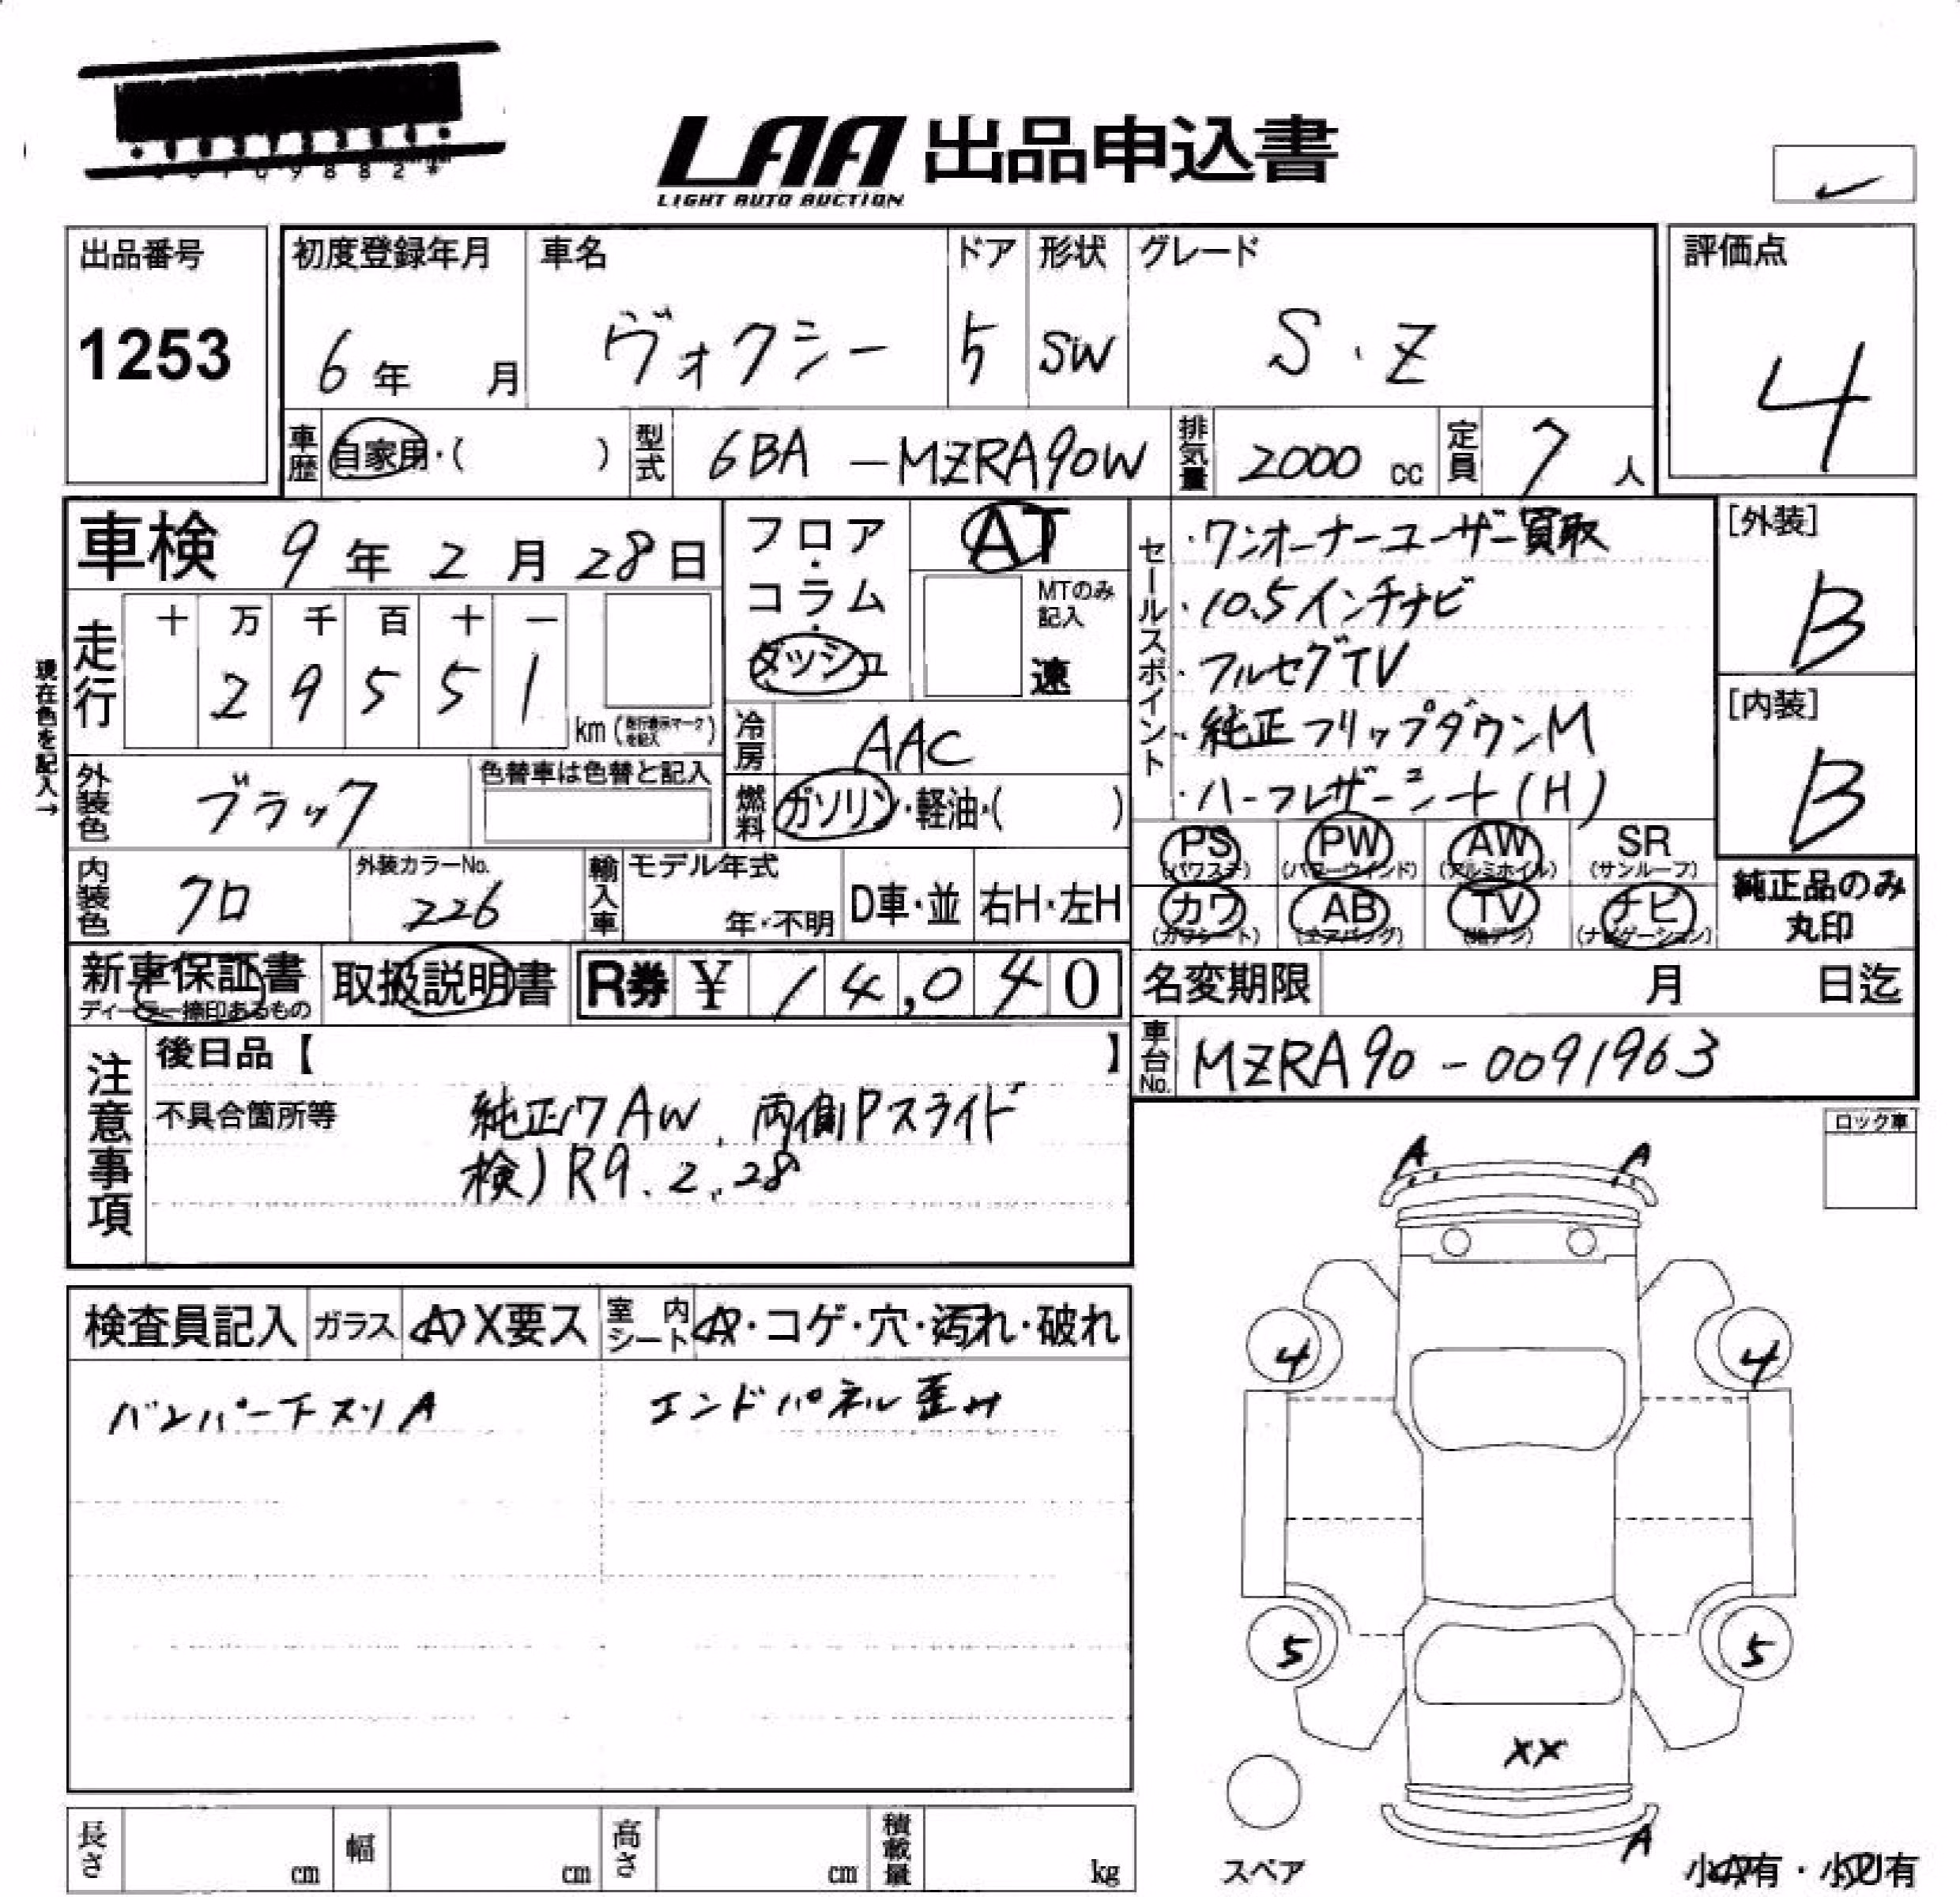 LAA 出品申込書
LIGHT AUTO AUCTION
出品番号
1253
初度登録年月
6年 月
車名
ヴォクシー
ドア
5
形状
SW
グレード
S・Z
評価点
4
車歴
自家用・( )
型式
6BA -MZRA90W
排気量
2000 cc
定員
7 人
車検 9年 2月 28日
走行
十 万 千 百 十 一
2 9 5 5 1
km (走行表示マークを記入)
現在色を記入→
フロア・コラム・ダッシュ
AT
MTのみ記入
速
冷房
AAC
燃料
ガソリン・軽油・( )
外装色
ブラック
色替車は色替と記入
内装色
クロ
外装カラーNo.
226
輸入車
モデル年式
年・不明
D車・並
右H・左H
セールスポイント
・ワンオーナーユーザー買取
・10.5インチナビ
・フルセグTV
・純正フリップダウンM
・ハーフレザーシート(H)
[外装]
B
[内装]
B
PS (パワステ)
PW (パワーウインド)
AW (アルミホイル)
SR (サンルーフ)
カワ (カワシート)
AB (エアバッグ)
TV (地デジ)
ナビ (ナビゲーション)
純正品のみ
丸印
新車保証書
ディーラー捺印あるもの
取扱説明書
R券 ¥ 14,040
名変期限 月 日迄
車台No.
MZRA90-0091963
注意事項
後日品【 】
不具合箇所等
純正17AW、両側Pスライド
検)R9.2.28
ロック車
検査員記入
ガラス
A X要ス
室内シート
A・コゲ・穴・汚れ・破れ
バンパー下スリA
エンドパネル歪み
A A
4 4
5 5
XX
A
スペア
小A有・小U有
長さ cm
幅 cm
高さ cm
積載量 kg